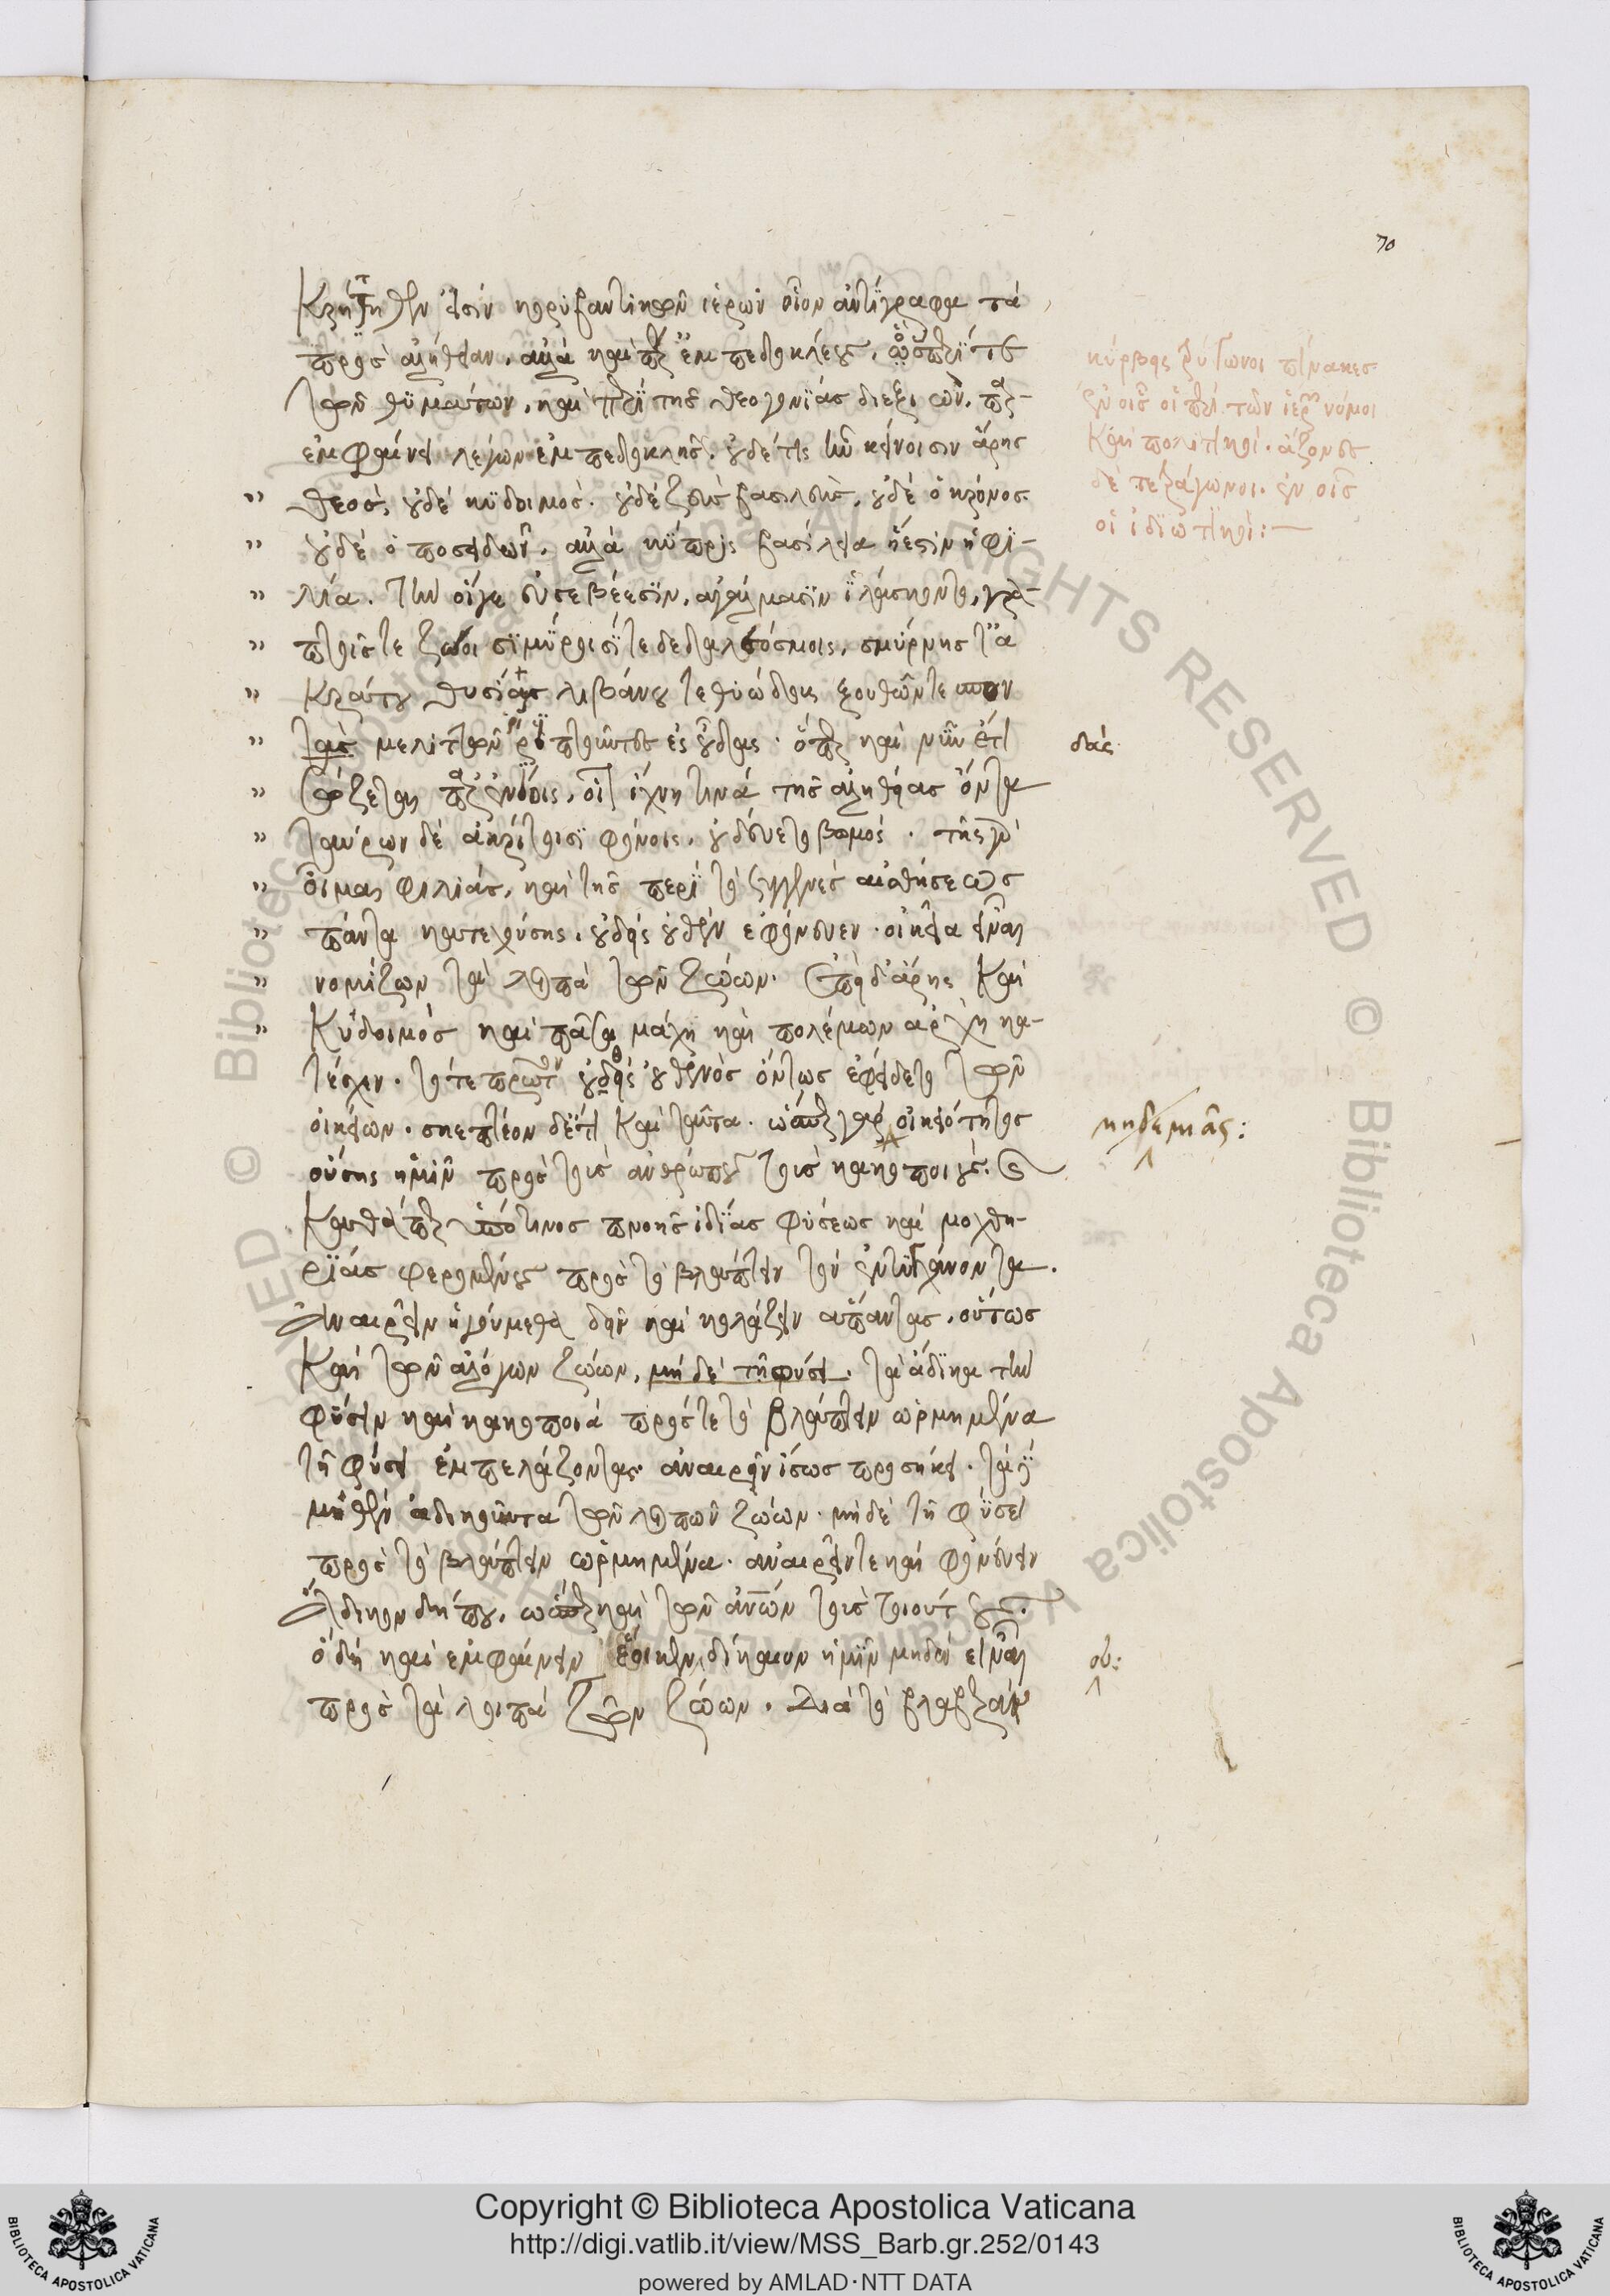 70
Κρήτη ἐστὶν κορυβαντικῶν ἱερῶν οἷον ἀντίγραφα τὰ
πρὸς ἀλήθειαν. ἀλλὰ καὶ παρ' ἐμπεδοκλέους. ὃς περί τε
τῶν θυμάτων, καὶ περὶ τῆς θεογονίας διεξιών, παρ-
εμφαίνει λέγων ἐμπεδοκλῆς. οὐδέ τις ἦν κείνοισιν ἄρης
" θεὸς, οὐδὲ κυδοιμός. οὐδὲ ζεὺς βασιλεὺς, οὐδὲ ὁ κρόνος
" οὐδὲ ὁ ποσειδῶν. ἀλλὰ κύπρις βασίλεια ἥ ἐστὶν ἡ φι-
" λία. τὴν οἵγε εὐσεβέεσσιν, ἀγάλμασιν ἱλάσκοντο, γρα-
" πτοῖς τε ζώοισι μύροισί τε δαιδαλεόσμοις, σμύρνης τ' ἀ
" κράτου θυσίαις λιβάνου τε θυώδους ξουθῶν τε
" μελιτῶν ῥιπτοῦντες ἐς οὖδας. ὅπερ καὶ νῦν ἔτι
δάς
" σώζεται παρ' ἐνίοις, οἷον ἴχνη τινὰ τῆς ἀληθείας ὄντα
" ταύρων δὲ ἀκρίτοισι φόνοις. οὐ δεύετο βωμός. τῆς γὰρ
" οἶμαι φιλίας, καὶ τῆς περὶ τὸ συγγενὲς αἰσθήσεως
" πάντα κατεχούσης. οὐδεὶς οὐθὲν ἐφόνευεν. οἰκεῖα εἶναι
" νομίζων τὰ λοιπὰ τῶν ζώων. ἐπεὶ δ' ἄρης καὶ
" Κυδοιμὸς καὶ πᾶσα μάχη καὶ πολέμων ἀρχὴ κα-
τέσχεν. τότε πρῶτον οὐθεὶς οὐθενὸς ὄντως ἐφείδετο τῶν
οἰκείων. σκεπτέον δ' ἔτι καὶ ταῦτα. ὥσπερ γὰρ οἰκειότητος
μηδεμιᾶς:
οὔσης ἡμῖν πρὸς τοὺς ἀνθρώπους τοὺς κακοποιούς.
Καθάπερ ὑπό τινος πνοῆς ἰδίας φύσεως καὶ μοχθη-
ρίας φερομένους πρὸς τὸ βλάπτειν τὸν ἐντυγχάνοντα.
Ἀναιρεῖν ἡγούμεθα δεῖν καὶ κολάζειν ἅπαντας, οὕτως
Καὶ τῶν ἀλόγων ζώων, μηδὲ τῇ φύσει. τὰ ἄδικα τὴν
φύσιν καὶ κακοποιὰ πρός τε τὸ βλάπτειν ὡρμημένα
τῇ φύσει ἐμπελάζοντας ἀναιρεῖν ἴσως προσήκει. τὰ
μηθὲν ἀδικοῦντα τῶν λοιπῶν ζώων. μηδὲ τῇ φύσει
πρὸς τὸ βλάπτειν ὡρμημένα. ἀναιρεῖν τε καὶ φονεύειν
ἄδικον δήπου. ὥσπερ καὶ τῶν ἀνθρώπων τοὺς τοιούτους.
ὃ δὴ καὶ ἐμφαίνειν ἔοικεν δίκαιον ἡμῖν μηδὲν εἶναι
οὐ:
πρὸς τὰ λοιπὰ τῶν ζώων. διὰ τὸ βλαβερά
κύρβεις τρίγωνοι πίνακες
ἐν οἷς οἱ περὶ τῶν ἱερῶν νόμοι
καὶ πολιτικοί. ἄξονες
δὲ τετράγωνοι. ἐν οἷς
οἱ ἰδιωτικοί:
Copyright © Biblioteca Apostolica Vaticana
http://digi.vatlib.it/view/MSS_Barb.gr.252/0143
powered by AMLAD·NTT DATA